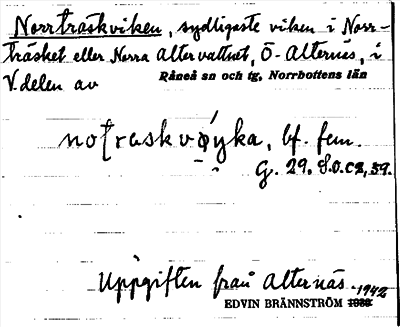 Norrträskviken, sydligaste viken i Norr-
träsket eller Norra Altervattnet, Ö- Alternäs, i
V.delen av Råneå sn och tg, Norrbottens län
bf. fem.
G. 29.
Uppgiften från Alternäs. 1942
EDVIN BRÄNNSTRÖM